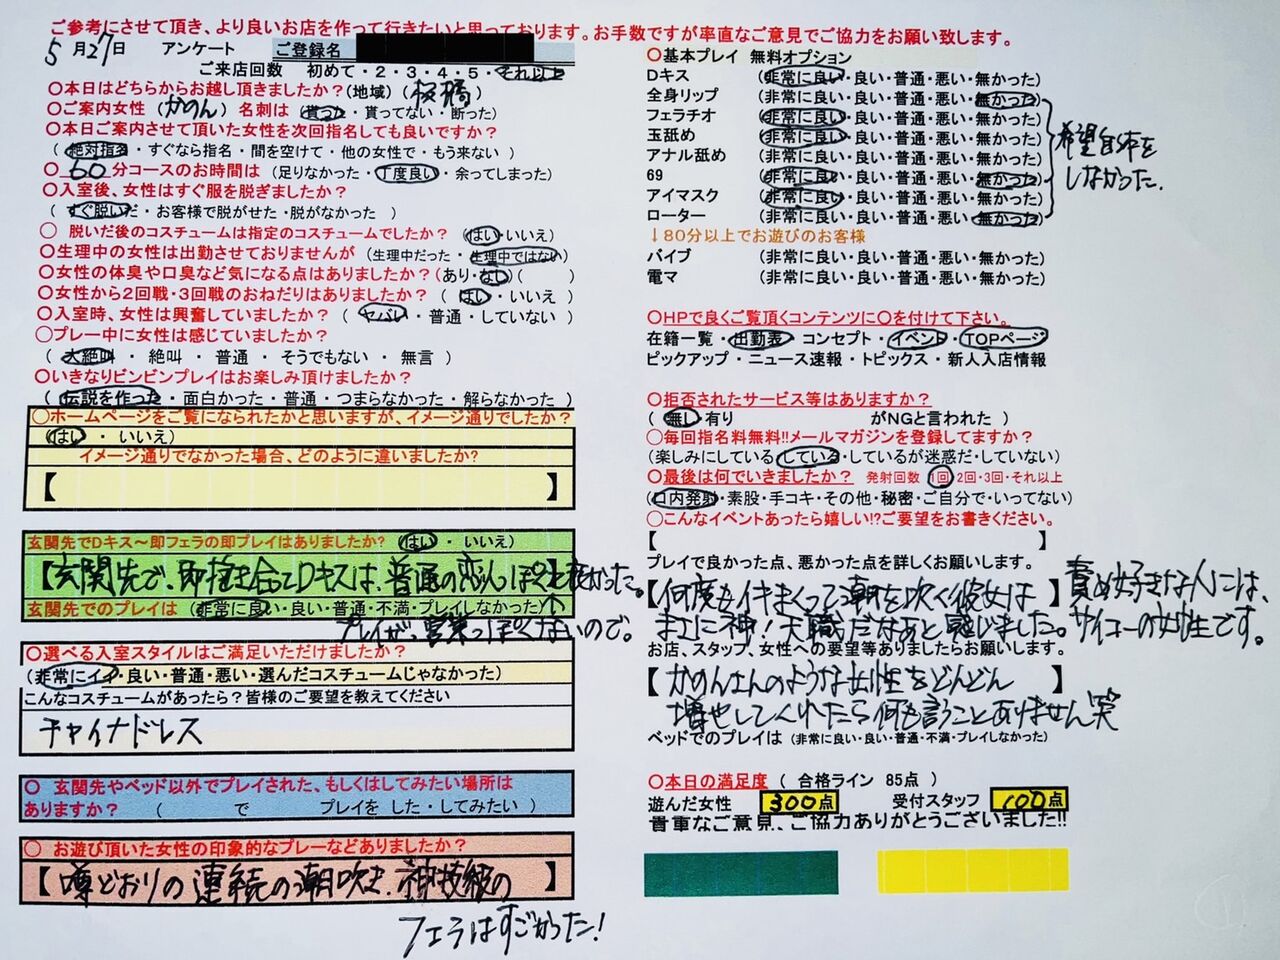 ご参考にさせて頂き、より良いお店を作って行きたいと思っております。お手数ですが率直なご意見でご協力をお願い致します。
5月27日 アンケート ご登録名
ご来店回数 初めて・2・3・4・5・それ以上
○本日はどちらからお越し頂きましたか?(地域) (板橋)
○ご案内女性 (かのん) 名刺は (貰った・貰ってない・断った)
○本日ご案内させて頂いた女性を次回指名しても良いですか?
(絶対指名・すぐなら指名・間を空けて・他の女性で・もう来ない)
○60分コースのお時間は (足りなかった・丁度良い・余ってしまった)
○入室後、女性はすぐ服を脱ぎましたか?
(すぐ脱いだ・お客様で脱がせた・脱がなかった )
○ 脱いだ後のコスチュームは指定のコスチュームでしたか? (はい・いいえ)
○生理中の女性は出勤させておりませんが (生理中だった・生理中ではない)
○女性の体臭や口臭など気になる点はありましたか?(あり・なし)( )
○女性から2回戦・3回戦のおねだりはありましたか? ( はい・いいえ )
○入室時、女性は興奮していましたか? ( ヤバい・普通・していない )
○プレー中に女性は感じていましたか?
( 大絶叫・ 絶叫 ・ 普通 ・ そうでもない ・ 無言 )
○いきなりビンビンプレイはお楽しみ頂けましたか?
( 伝説を作った・面白かった・普通・つまらなかった・解らなかった )
○ホームページをご覧になられたかと思いますが、イメージ通りでしたか?
(はい ・ いいえ)
イメージ通りでなかった場合、どのように違いましたか?
【 】
玄関先でDキス～即フェラの即プレイはありましたか? (はい・いいえ)
【玄関先で、即抱き合ってDキスは、普通の恋人っぽくて良かった。
玄関先でのプレイは (非常に良い・良い・普通・不満・プレイしなかった)
プレイが、営業っぽくないので。
○選べる入室スタイルはご満足いただけましたか?
(非常にイイ・良い・普通・悪い・選んだコスチュームじゃなかった)
こんなコスチュームがあったら?皆様のご要望を教えてください
チャイナドレス
○ 玄関先やベッド以外でプレイされた、もしくはしてみたい場所は
ありますか? ( で プレイを した・してみたい )
○ お遊び頂いた女性の印象的なプレーなどありましたか?
【噂どおりの連続の潮吹き、神技級の 】
フェラはすごかった!
○基本プレイ 無料オプション
Dキス (非常に良い・良い・普通・悪い・無かった)
全身リップ (非常に良い・良い・普通・悪い・無かった)
フェラチオ (非常に良い・良い・普通・悪い・無かった)
玉舐め (非常に良い・良い・普通・悪い・無かった)
アナル舐め (非常に良い・良い・普通・悪い・無かった)
69 (非常に良い・良い・普通・悪い・無かった)
アイマスク (非常に良い・良い・普通・悪い・無かった)
ローター (非常に良い・良い・普通・悪い・無かった)
希望自体を
しなかった.
↓80分以上でお遊びのお客様
バイブ (非常に良い・良い・普通・悪い・無かった)
電マ (非常に良い・良い・普通・悪い・無かった)
○HPで良くご覧頂くコンテンツに○を付けて下さい。
在籍一覧・出勤表・コンセプト・イベント・TOPページ
ピックアップ・ニュース速報・トピックス・新人入店情報
○拒否されたサービス等はありますか?
( 無し・有り がNGと言われた )
○毎回指名料無料!!メールマガジンを登録してますか?
(楽しみにしている・している・しているが迷惑だ・していない)
○最後は何でいきましたか? 発射回数 1回・2回・3回・それ以上
(口内発射・素股・手コキ・その他・秘密・ご自分で・いってない)
○こんなイベントあったら嬉しい!?ご要望をお書きください。
【 】
プレイで良かった点、悪かった点を詳しくお願いします。
【何度もイキまくって潮を吹く彼女は 】責め好きな人には、
まさに神!天職だなぁと感じました。サイコーの女性です。
お店、スタッフ、女性への要望等ありましたらお願いします。
【かのんさんのような女性をどんどん 】
増やしてくれたら何も言うことありません笑
ベッドでのプレイは (非常に良い・良い・普通・不満・プレイしなかった)
○本日の満足度 ( 合格ライン 85点 )
遊んだ女性 300点 受付スタッフ 100点
貴重なご意見、ご協力ありがとうございました!!